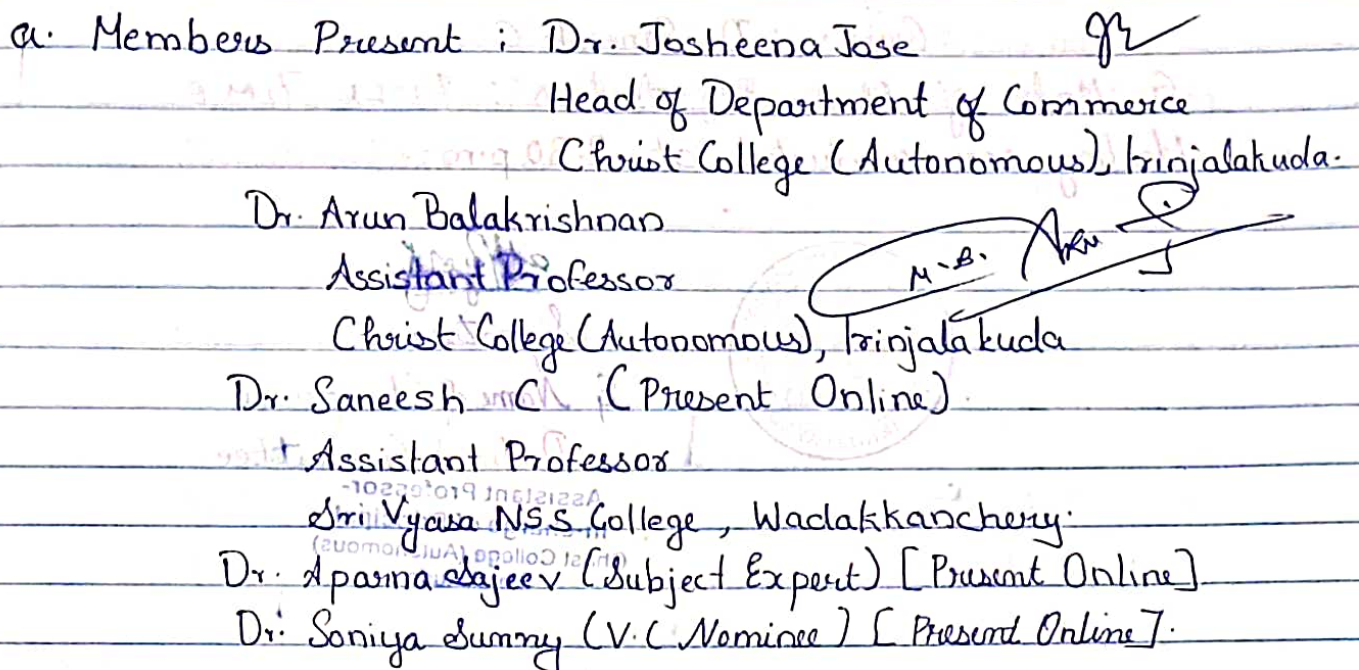 a. Members Present : Dr. Josheena Jose
Head of Department of Commerce
Christ College (Autonomous), Irinjalakuda.
Dr. Arun Balakrishnan
Assistant Professor
M.B. Arun
Christ College (Autonomous), Irinjalakuda
Dr. Saneesh C (Present Online)
Assistant Professor
Sri Vyasa NSS College, Wadakkanchery.
Dr. Aparna Sajeev (Subject Expert) [Present Online]
Dr. Soniya Sunny (V.C Nominee) [Present Online].